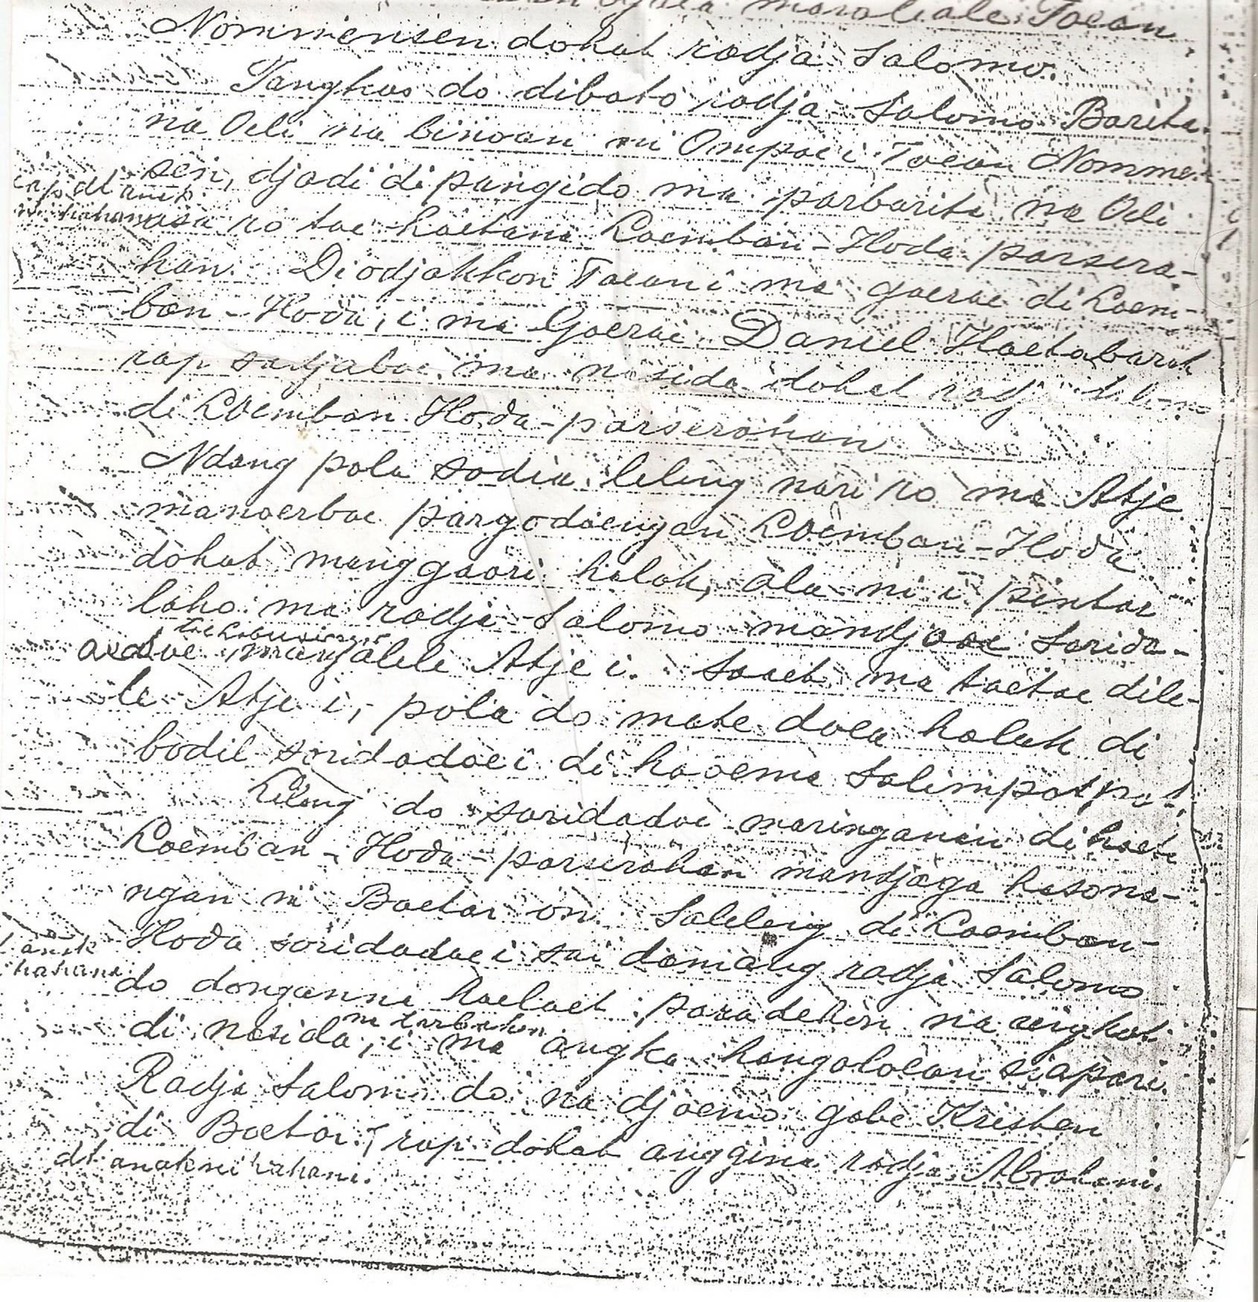 maraleale Toean
Nommensen dohot radja Salomo.
Tangkas do diboto radja Salomo Barita
na Oeli na binoan ni Ompoe i Toean Nommen-
sen, djadi dipangido ma parbarita na Oeli
asa ro toe hoetana Loemban-Hoda-parsera-
han. Diodjakkon Toean i ma goeroe di Loem-
ban-Hoda, i ma Goeroe Daniel Hoetabarat
rap sadjaboe ma nasida dohot radj
di Loemban Hoda-parserahan
Ndang pola sadia leleng nari ro ma Atje
manoerboe pargodoengan Loemban-Hoda
dohot manggaori halak, ala ni i pintor
laho ma radja Salomo mandjoeo sorida-
doe mangalele Atje i. Saoet ma toetoe dile-
le Atje i, pola do mate doea halak di
bodil soridadoe i di haoema Salimpotpot
Leleng do soridadoe maringanan di
Loemban-Hoda-parserahan mandjaga hasona-
ngan ni Boetar on. Saleleng di Loemban-
Hoda soridadoe i sai domang radja Salomo
do dongan na
di nasida, i ma angka hangoloean siapari.
Radja Salomo do na djoemo gabe Kristen
di Boetar, rap dohot anggina radja Abraham
dt anak ni hahani.